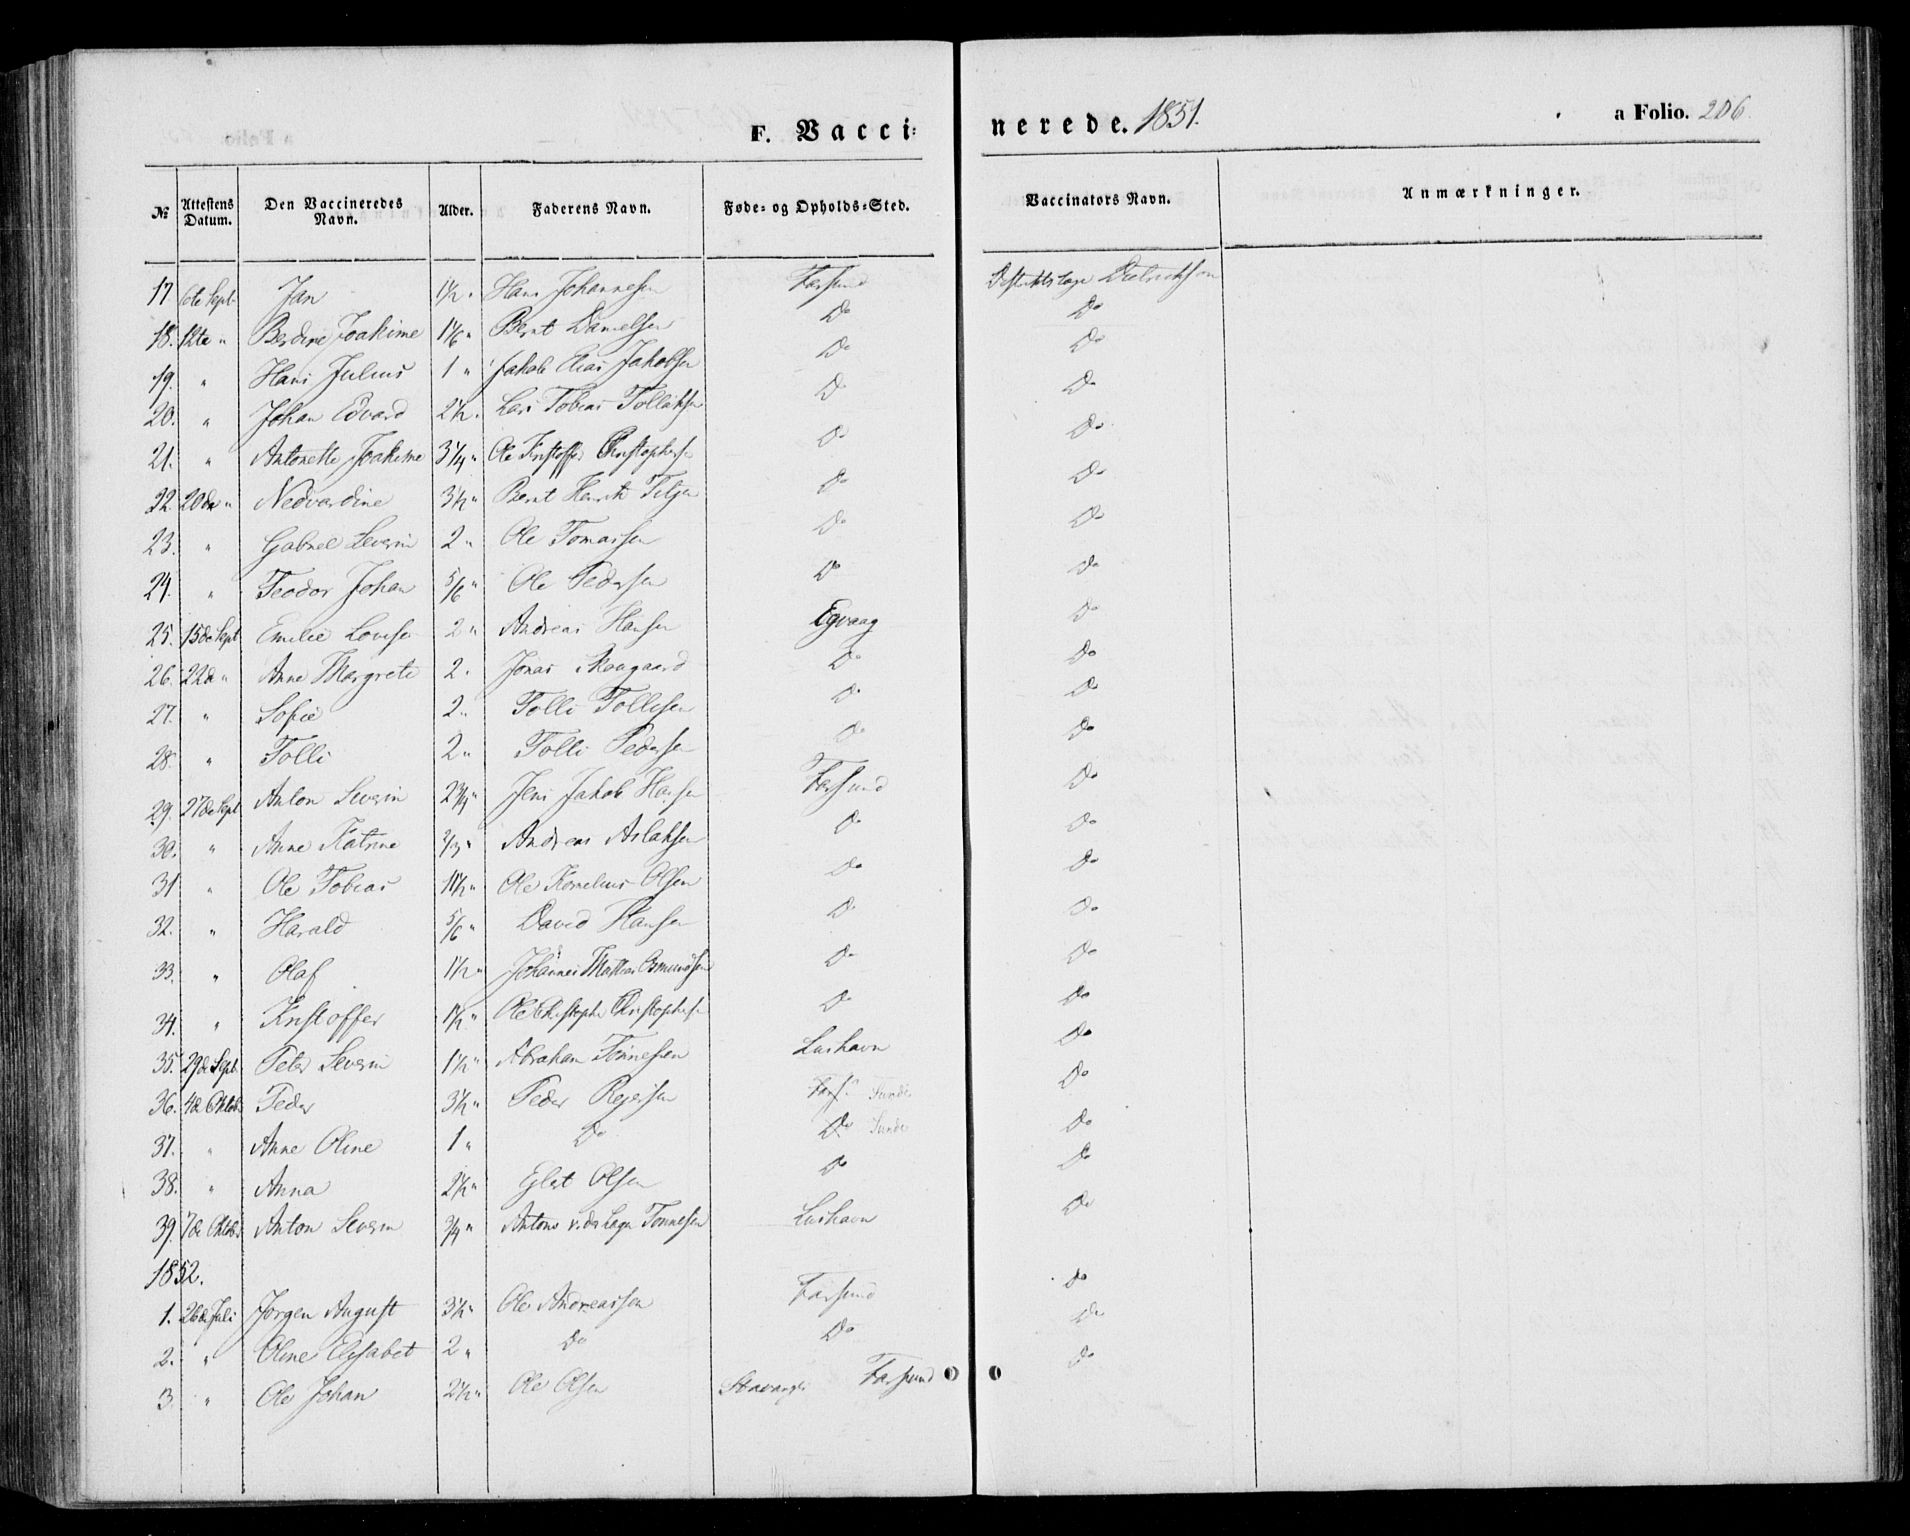 F. Vaccinerede. 1851. a Folio. 206.
№ Attestens Datum. Den Vaccineredes Navn. Alder. Faderens Navn. Føde- og Opholds-Sted. Vaccinators Navn. Anmærkninger.
17 6te Sept. Jan 1½ " Hans Johannesen Farsund Dietrichson
18. 12te " Berdine Joakime 1 1/6 " Bernt Danielsen Do Do
19. " Hans Julius 1 " Jakob Elias Jakobsen Do Do
20. " Johan Edvard 2½ " Lars Tobias Tollaksen Do Do
21. " Antonette Joakime 3 1/4 " Ole Kristoffer Christophersen Do Do
22. 20de " Nedvardine 3½ " Bernt Henrik Do Do
23. " Gabriel Severin 2 " Ole Tomassen Do Do
24. " Teodor Johan 5/6 " Ole Pedersen Do Do
25. 15de Sept Emilie Lovise 2 " Andreas Hansen Egvaag Do
26. 22de " Anne Margrete 2 " Jonas Skaagaard Do Do
27. " Sofie 2 " Tolli Tollisen Do Do
28. " Tolli 2 " Tolli Pedersen Do Do
29. 27de Sept Anton Severin 2 3/4 " Jens Jakob Hansen Farsund Do
30. " Anne Katrine 2/3 " Andreas Aslaksen Do Do
31 " Ole Tobias Ole Kornelius Olsen Do Do
32. " Harald 5/6 " David Hansen Do Do
33. " Olaf 1½ " Johannes Mathias Osmundsen Do Do
34. " Kristoffer 1½ " Ole Christopher Christophersen Do Do
35. 29de Sept. Peter Severin 1½ " Abraham Tønnesen Lushavn Do
36. 4de Oktob. Peder 3½ " Peder Reiersen Fars. Sunde Do
37. " Anne Oline 1 " Do Do Sunde Do
38. " Anna 2½ " Eilert Olsen Do Do
39. 7de Oktob. Anton Severin 3/4 " Antons v. der Lagn Tønnesen Lushavn Do
1852.
1. 26de Juli Jørgen August 3½ " Ole Andreassen Farsund Do
2. " Oline Elisabet 2 " Do Do Do
3. " Ole Johan 2½ " Ole Olsen Farsund Do